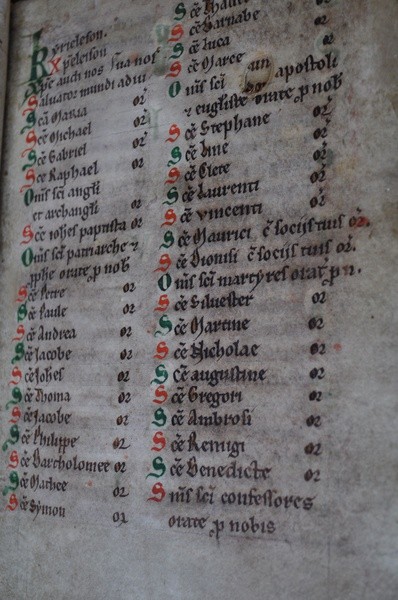 Kyrieleson.
Xpeleison
xpe audi nos
Saluator mundi adiu
Scā Maria or
Scē Michael or
Scē Gabriel or
Scē Raphael or
Oms̄ sc̄i angli
et archangli or
Scē iohes̄ baptista or
Oms̄ sc̄i patriarche ⁊
prophe orate p nob
Scē Petre or
Scē Paule or
Scē Andrea or
Scē Jacobe or
Scē Johes̄ or
Scē Thoma or
Scē Jacobe or
Scē Philippe or
Scē Bartholomee or
Scē Mathee or
Scē Symon or
Scē or
Scē Barnabe or
Scē Luca or
Scē Marce or
Oms̄ sc̄i apostoli
⁊ euglīste orate p nob
Scē Stephane or
Scē Line or
Scē Clete or
Scē Laurenti or
Scē vincenti or
Scē Maurici c̄ socijs tuis or.
Scē Dionisi c̄ socijs tuis or.
Oms̄ sc̄i martyres orate p n.
Scē Siluester or
Scē Martine or
Scē Nicholae or
Scē augustine or
Scē Gregori or
Scē Ambrosi or
Scē Remigi or
Scē Benedicte or
Sms̄ sc̄i confessores
orate p nobis